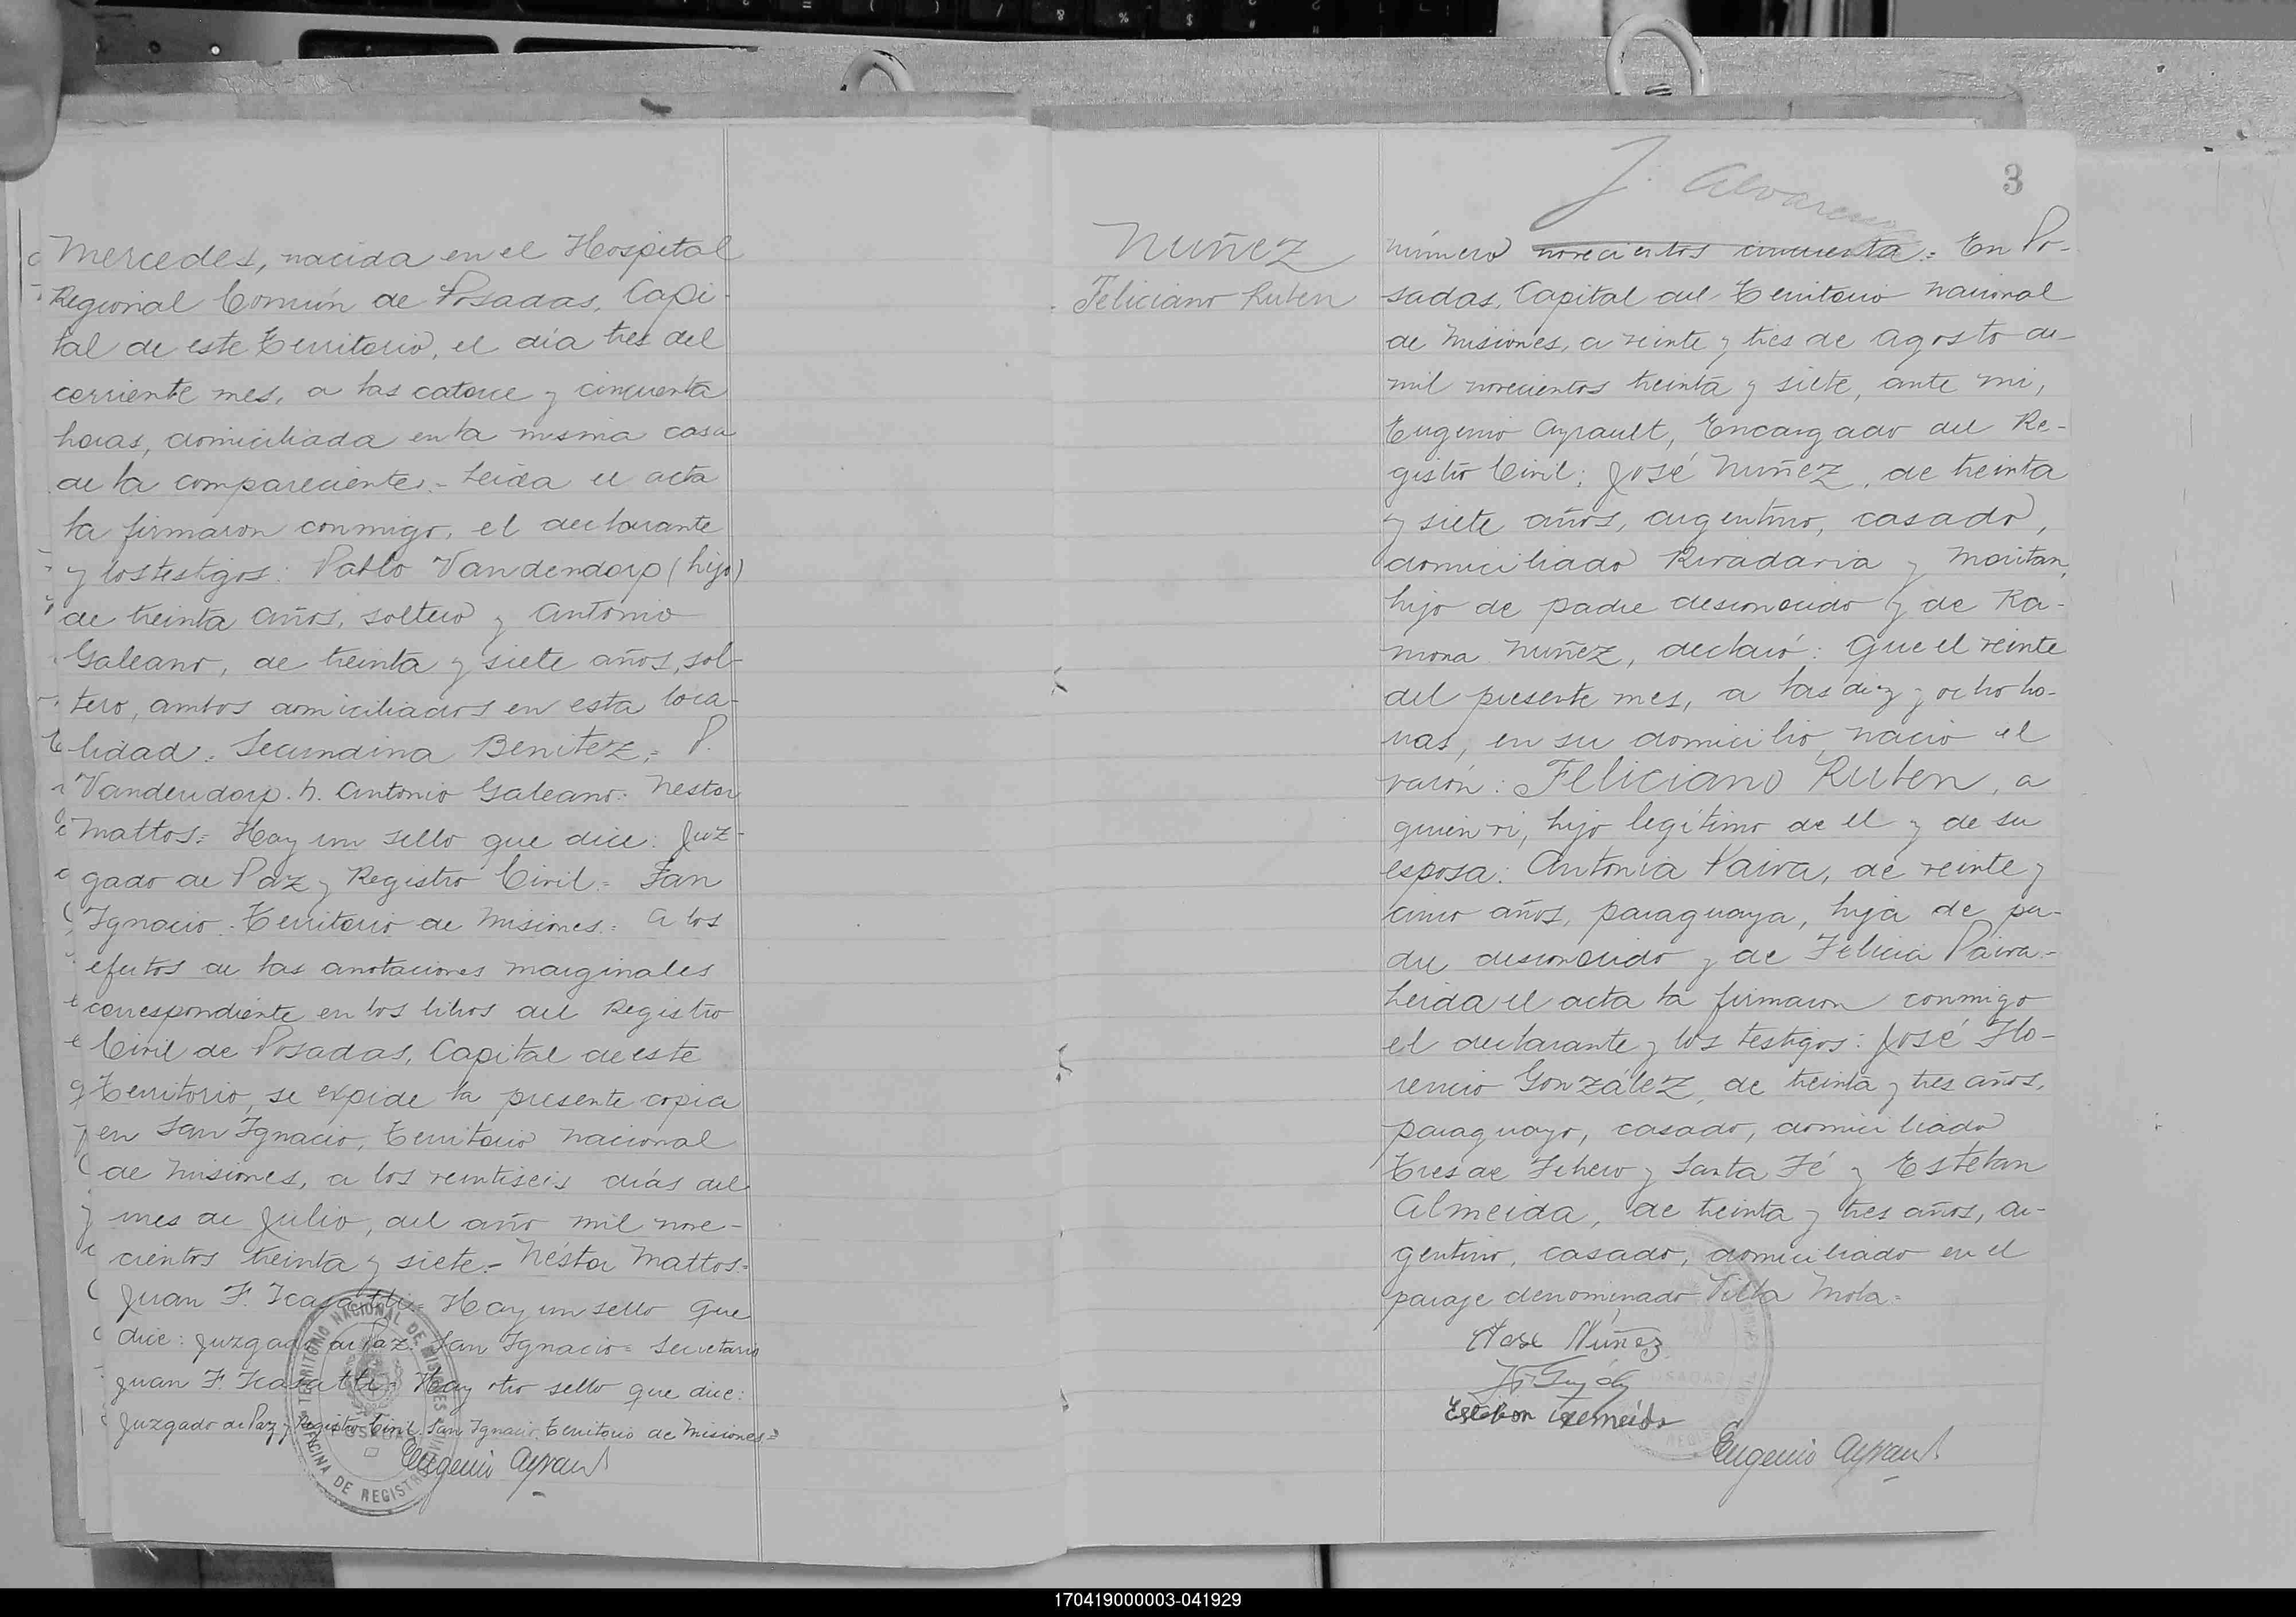 Mercedes, nacida en el Hospital
Regional Común de Posadas, Capi-
tal de este Territorio, el día tres del
corriente mes, a las catorce y cincuenta
horas, domiciliada en la misma casa
de la compareciente.- Leida el acta
la firmaron conmigo, el declarante
y los testigos: Pablo Vandendorp (hijo)
de treinta años, soltero y Antonio
Galeano, de treinta y siete años, sol-
tero, ambos domiciliados en esta loca-
lidad. Secundina Benitez.= P.
Vandendorp. h. Antonio Galeano. Nestor
Mattos= Hay un sello que dice: Juz-
gado de Paz y Registro Civil= San
Ignacio. Territorio de Misiones.= A los
efectos de las anotaciones marginales
correspondiente en los libros del Registro
Civil de Posadas, Capital de este
Territorio, se expide la presente copia
en San Ignacio, Territorio Nacional
de Misiones, a los veintiseis días del
mes de Julio, del año mil nove-
cientos treinta y siete.- Néstor Mattos=
Juan F. Hay un sello que
dice: Juzgado de Paz. San Ignacio= Secretario
Juan F. Hay otro sello que dice:
Juzgado de Paz y Registro Civil. San Ignacio. Territorio de Misiones=
Eugenio Ayrault
TERRITORIO NACIONAL DE MISIONES
OFICINA DE REGISTRO CIVIL
POSADAS
J. Alvarenga
3
Nuñez
Feliciano Ruben
Número novecientos cincuenta.= En Po-
sadas, Capital del Territorio Nacional
de Misiones, a veinte y tres de Agosto de
mil novecientos treinta y siete, ante mi,
Eugenio Ayrault, Encargado del Re-
gistro Civil; José Nuñez, de treinta
y siete años, argentino, casado,
domiciliado Rivadavia y Moritan,
hijo de padre desconocido y de Ra-
mona Nuñez, declaró: Que el veinte
del presente mes, a las diez y ocho ho-
ras, en su domicilio, nació el
varón: Feliciano Ruben, a
quien vi, hijo legítimo de el y de su
esposa: Antonia Paiva, de veinte y
cinco años, paraguaya, hija de pa-
dre desconocido y de Felicia Paiva.-
Leida el acta la firmaron conmigo
el declarante y los testigos: José Flo-
rencio González, de treinta y tres años,
paraguayo, casado, domiciliado
Tres de Febrero y Santa Fé y Esteban
Almeida, de treinta y tres años, ar-
gentino, casado, domiciliado en el
paraje denominado Villa Mola=
José Núñez
Esteban Almeida
Eugenio Ayrault
170419000003-041929